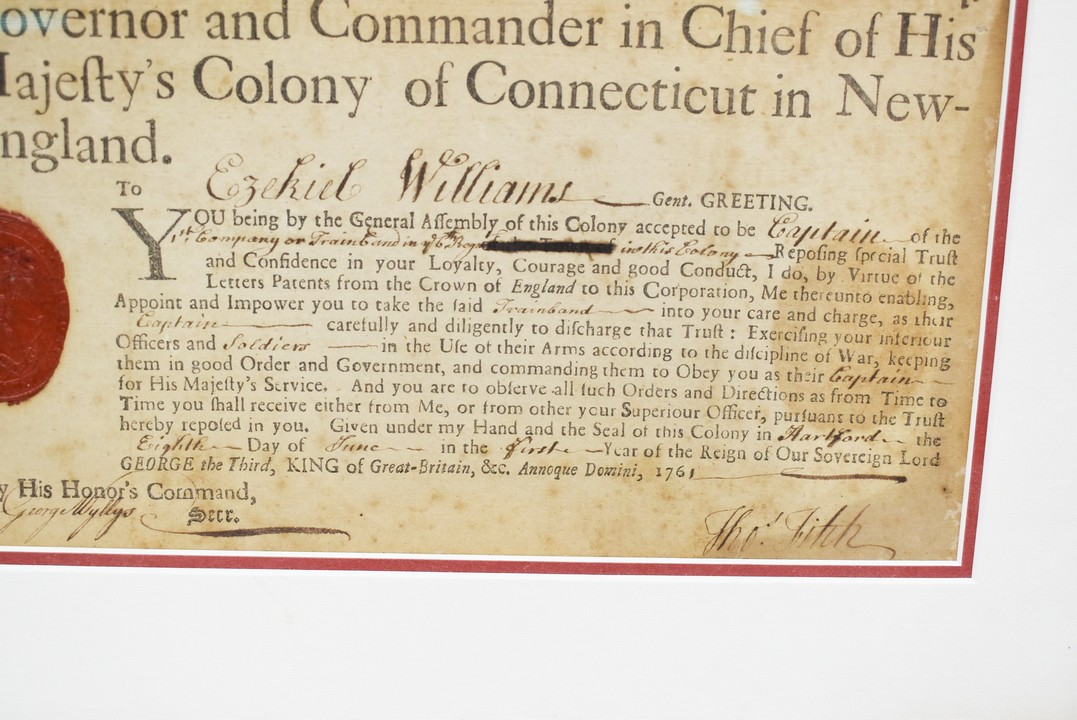 overnor and Commander in Chief of His
ajeſty's Colony of Connecticut in New-
ngland.
To Ezekiel Williams Gent. GREETING.
YOU being by the General Aſſembly of this Colony accepted to be Captain of the
1st Company or Trainband in ye 6th Regt in this Colony Repoſing ſpecial Truſt
and Confidence in your Loyalty, Courage and good Conduct, I do, by Virtue of the
Letters Patents from the Crown of England to this Corporation, Me thereunto enabling,
Appoint and Impower you to take the ſaid Trainband into your care and charge, as their
Captain carefully and diligently to diſcharge that Truſt: Exerciſing your inferiour
Officers and Soldiers in the Uſe of their Arms according to the diſcipline of War, keeping
them in good Order and Government, and commanding them to Obey you as their Captain
for His Majeſty's Service. And you are to obſerve all ſuch Orders and Directions as from Time to
Time you ſhall receive either from Me, or from other your Superiour Officer, purſuant to the Truſt
hereby repoſed in you. Given under my Hand and the Seal of this Colony in Hartford the
Eighth Day of June in the first Year of the Reign of Our Sovereign Lord
GEORGE the Third, KING of Great-Britain, &c. Annoque Domini, 1761
y His Honor's Command,
George Wyllys Secr.
Thos Fitch